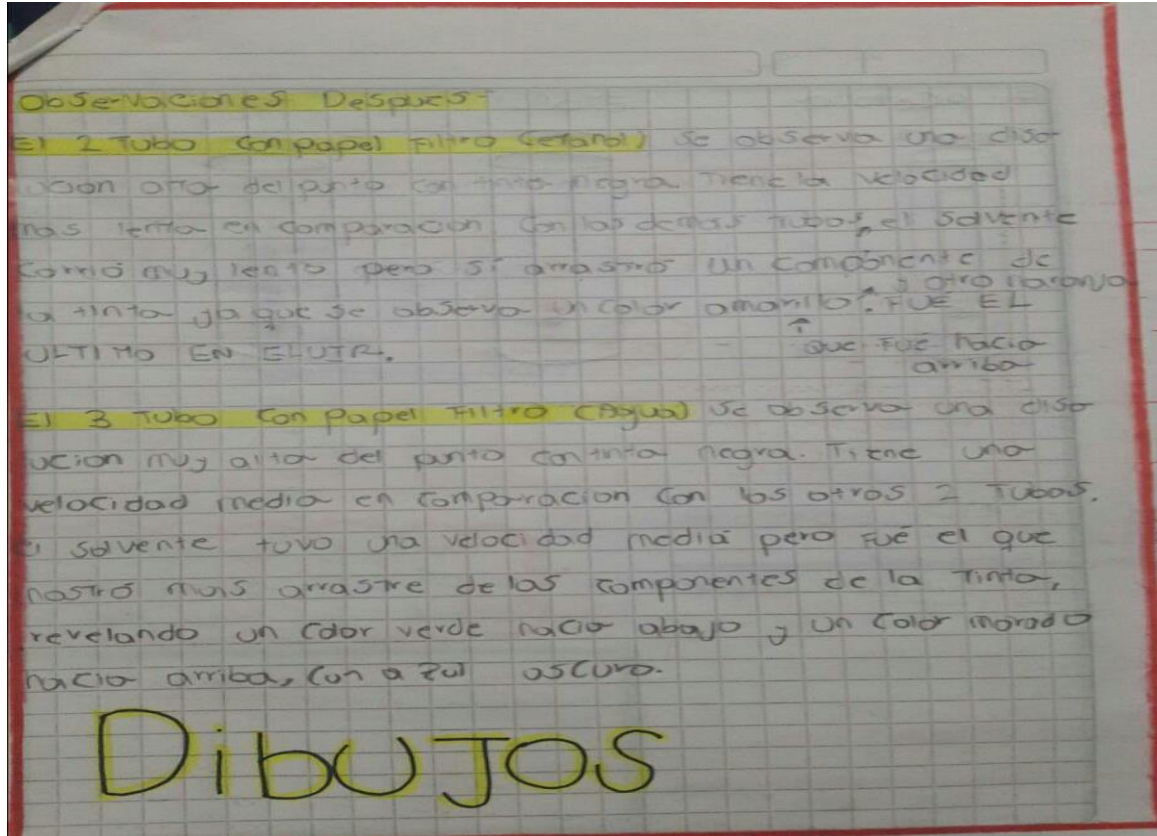 Observaciones Despues:
El 2 Tubo con papel Filtro (etanol) se observa una diso
ucion alta del punto con tinta negra Tiene la velocidad
mas lenta en comparacion con los demas tubos, el solvente
corrió muy lento pero si arrastró un componente de
y otro naranja
a tinta ya que se observa un color amarillo. FUE EL
ULTIMO EN ELUIR.
que fue hacia
arriba
El 3 Tubo con Papel Filtro (Agua) se observa una diso
ucion muy alta del punto con tinta negra. Tiene una
velocidad media en comparacion con los otros 2 Tubos.
El solvente tuvo una velocidad media pero fué el que
mostró mas arrastre de los componentes de la Tinta,
revelando un color verde hacia abajo y un color morado
hacia arriba, con azul oscuro.
DibUJOS